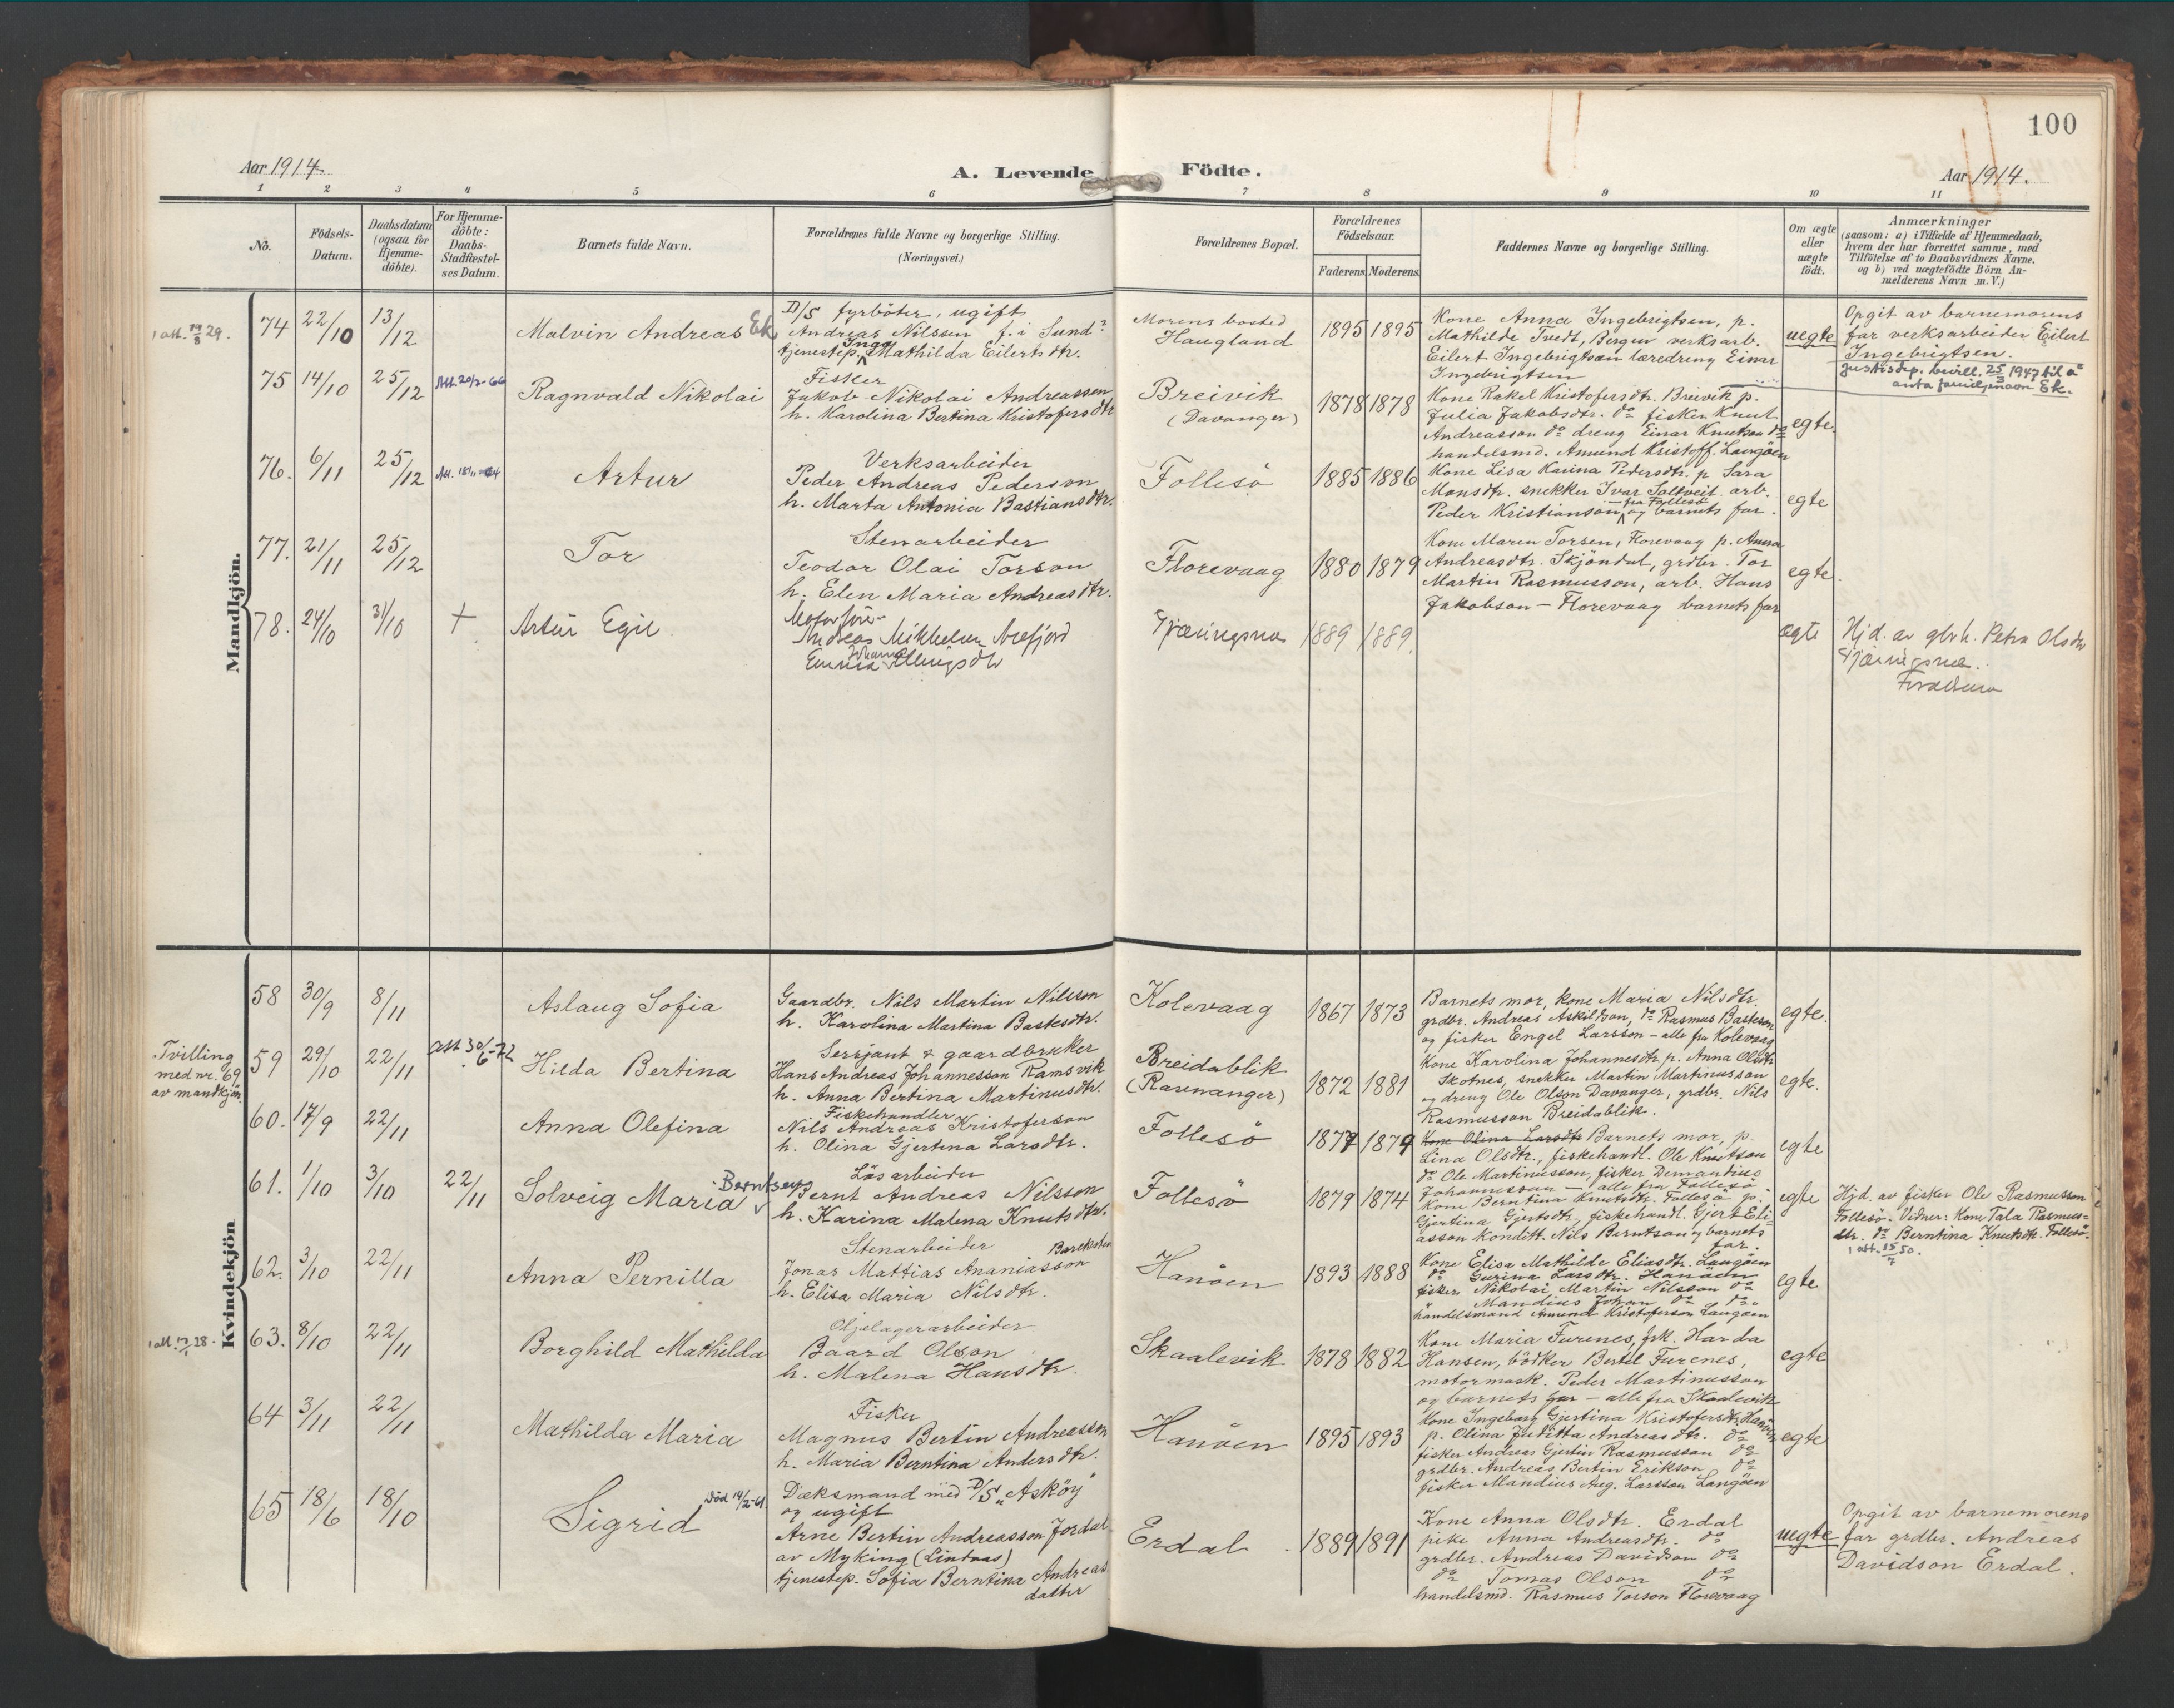 100
Aar 1914.
A. Levende Födte.
Aar 1914.
1 2 3 4 5 6 7 8 9 10 11
No.
Födsels-Datum.
Daabsdatum (ogsaa for Hjemme-döbte).
For Hjemme-döbte: Daabs-Stadfæstel-ses Datum.
Barnets fulde Navn.
Forældrenes fulde Navne og borgerlige Stilling.
(Næringsvei.)
Forældrenes Bopæl.
Forældrenes Födselsaar.
Faderens. Moderens.
Faddernes Navne og borgerlige Stilling.
Om ægte eller uægte födt.
Anmærkninger
(saasom: a) i Tilfælde af Hjemmedaab,
hvem der har forrettet samme, med
Tilföielse af to Daabsvidners Navne,
og b) ved uægtefödte Börn An-
melderens Navn m.V.)
Mandkjön.
1 att. 29.
74 22/10 13/12 Malvin Andreas Ek
D/S fyrböter, ugift
Andreas Nilssen f. i Sund
tjenestep. Inga Mathilda Eilertsdtr.
Morens bosted
Haugland
1895 1895
Kone Anna Ingebrigtsen, p.
Mathilde Tvedt, Bergen verksarb.
Eilert Ingebrigtsen læredreng Einar
Ingebrigtsen
uegte
Opgit av barnemorens
far verksarbeider Eilert
Ingebrigtsen.
Justisdep. bevill. 25/3 1947 til å
anta familienavn Ek.
75 14/10 25/12 Att. 20/2-66 Ragnvald Nikolai
Fisker
Jakob Nikolai Andreassen
h. Karolina Bertina Kristofersdtr
Breivik
(Davanger)
1878 1878
Kone Rakel Kristofersdtr. Breivik p.
Julia Jakobsdtr. do fisker Knut
Andreasson do dreng Einar Knutson do
handelsmd. Amund Kristoff. Langöen
egte.
76. 6/11 25/12 Artur
Verksarbeider
Peder Andreas Pederson
h. Marta Antonia Bastiansdtr.
Follesö
1885 1886
Kone Lisa Karina Pedersdtr. p. Sara
Monsdtr. snekker Ivar Soltveit arb.
Peder Kristianson - fra Follesö og barnets far.
egte
77. 21/11 25/12 Tor
Stenarbeider
Teodor Olai Torson
h. Elen Maria Andreasdtr.
Florevaag
1880 1879
Kone Maren Torsen, Florevaag p. Anna
Andreasdtr. Skjöndal, grdbr. Tor
Martin Rasmusson, arb. Hans
Jakobson - Florevaag barnets far
egte.
78. 24/10 31/10 + Artur Egil.
Motorförer
Andreas Mikkelsen
Emma Johanna Ellingsdtr
1889 1889.
ægte
Hjd. av gbrk. Petra Olsdtr
Kvindekjön
58 30/9 8/11 Aslaug Sofia
Gaardbr. Nils Martin Nilsson
h. Karolina Martina Bastesdtr.
Kolevaag
1867 1873
Barnets mor, kone Maria Nilsdtr.
grdbr. Andreas Askildson, do Rasmus Basteson
og fisker Engel Larsson - alle fra Kolevaag
egte.
Tvilling
med nr. 69
av mandkjön.
59 29/10 22/11 att 30/6-72 Hilda Bertina
Sersjant & gaardbruker
Hans Andreas Johannesson Ramsvik
h. Anna Bertina Martinusdtr.
Breidablik
(Ravnanger)
1872 1881
Kone Karolina Johannesdtr. p. Anna Olsdtr
Skotnes, snekker Martin Martinusson
og dreng Ole Olson Davanger, grdbr. Nils
Rasmusson Breidablik.
egte.
60. 17/9 22/11 Anna Olefina
Fiskehandler
Nils Andreas Kristoferson
h. Olina Gjertina Larsdtr.
Follesö
1877 1879
Kone Olina Larsdtr Barnets mor, p.
Lina Olsdtr., fiskehandl. Ole Knutson
do Ole Martinusson, fisker Demandius
Johannesson - alle fra Follesö
egte
61. 1/10 3/10 22/11 Solveig Maria Berntsen
Lösarbeider
Bernt Andreas Nilsson
h. Karina Malena Knutsdtr.
Follesö
1879 1874
Kone Berntina Knutsdtr. Follesö p.
Gjertina Gjertsdtr, fiskehandl. Gjert Eli-
asson Konditt. Nils Berntsson og barnets
far.
egte
Hjd. av fisker Ole Rasmusson
Follesö. Vidner: Kone Tala Rasmus-
dtr. do Berntina Knutsdtr. Follesö.
1 att. 15/7 50.
62. 3/10 22/11 Anna Pernilla
Stenarbeider Bareksten
Jonas Mattias Ananiasson
h. Elisa Maria Nilsdtr.
Hanöen
1893 1888
Kone Elisa Mathilde Eliasdtr. Langöen
do Gurina Larsdtr. Hanöen
fisker Nikolai Martin Nilsson do
" Mandius Johan do do
handelsmand Amund Kristoferson Langöen
egte
1 att. 28.
63. 8/10 22/11 Borghild Mathilda
Oljelagerarbeider
Baard Olson
h. Malena Hansdtr.
Skaalevik
1878 1882
Kone Maria Furenes, frk. Harda
Hansen, bödker Bertel Furenes,
motormask. Peder Martinusson
og barnets far - alle fra Skaalevik
egte
64 3/11 22/11 Mathilda Maria
Fisker
Magnus Bertin Andreasson
h. Maria Berntina Andersdtr.
Hanöen
1895 1893
Kone Ingeborg Gjertina Kristofersdtr. Hanöen
p. Olina Juditta Andreasdtr. do
fisker Andreas Gjertin Rasmusson do
grdbr. Andreas Bertin Erikson do
fisker Mandius Aug. Larsson Langöen
egte
65 18/6 18/10 Sigrid död 14/2-61
Dæksmand med D/S "Asköy"
og ugift
Arne Bertin Andreasson Jordal
av Myking (Lindaas)
tjenestep. Sofia Berntina Andreas
datter
Erdal
1889 1891
Kone Anna Olsdtr. Erdal
pike Anna Andreasdtr. do
grdbr. Andreas Davidson do
do Tomas Olson do
handelsmd. Rasmus Torson Florevaag
uegte
Opgit av barnemorens
far grdbr. Andreas
Davidson Erdal.